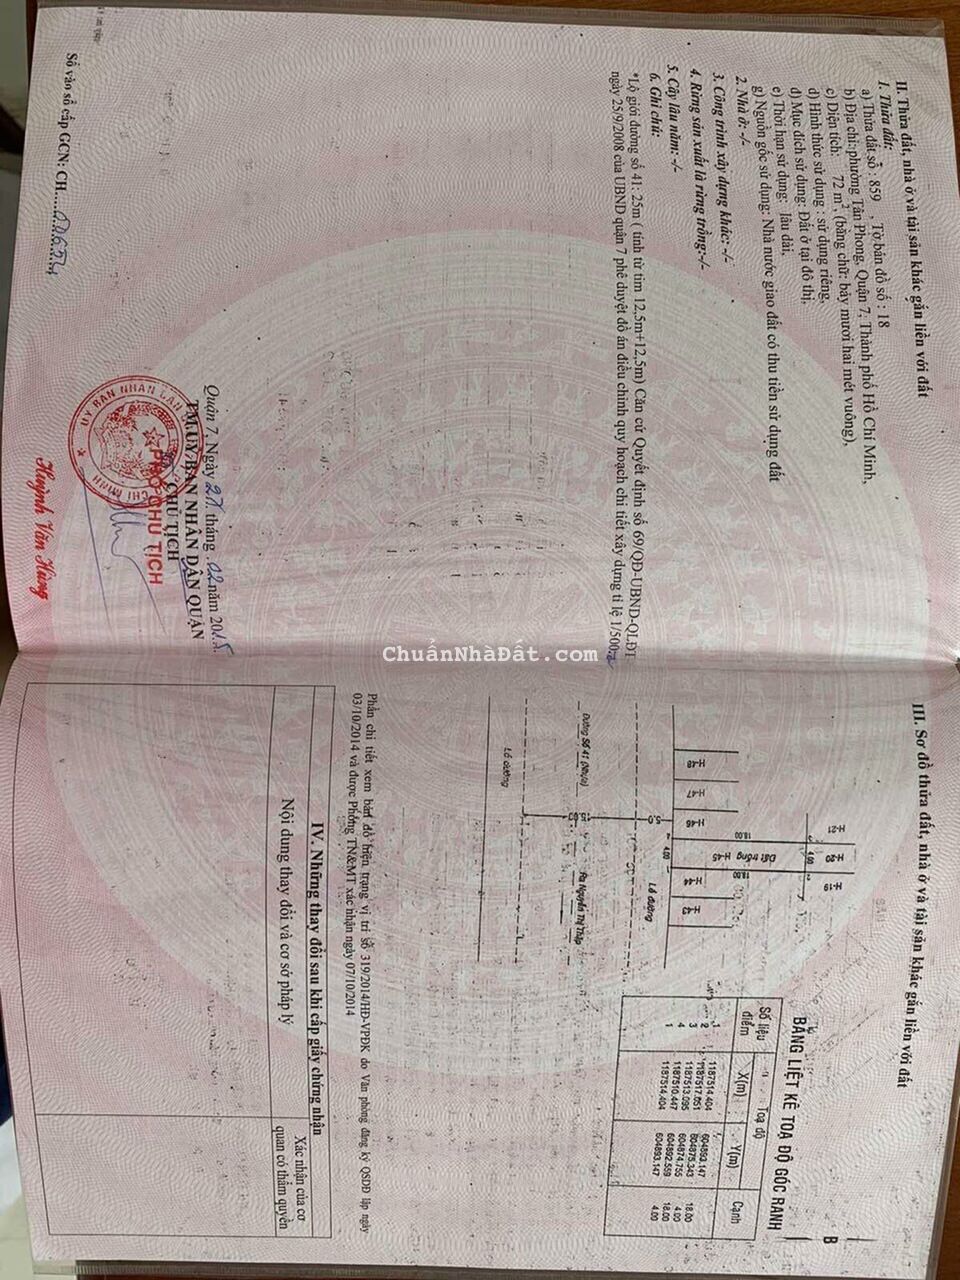 II. Thửa đất, nhà ở và tài sản khác gắn liền với đất
1. Thửa đất:
a) Thửa đất số : 859 , Tờ bản đồ số : 18
b) Địa chỉ: phường Tân Phong, Quận 7, Thành phố Hồ Chí Minh,
c) Diện tích: 72 m², (bằng chữ: bảy mươi hai mét vuông),
d) Hình thức sử dụng : sử dụng riêng,
đ) Mục đích sử dụng: Đất ở tại đô thị,
e) Thời hạn sử dụng: lâu dài,
g) Nguồn gốc sử dụng: Nhà nước giao đất có thu tiền sử dụng đất
2. Nhà ở: -/-
3. Công trình xây dựng khác: -/-
4. Rừng sản xuất là rừng trồng:-/-
5. Cây lâu năm: -/-
6. Ghi chú:
*Lộ giới đường số 41: 25m ( tính từ tim 12,5m+12,5m) Căn cứ Quyết định số 69/QĐ-UBND-QLĐT
ngày 25/9/2008 của UBND quận 7 phê duyệt đồ án điều chỉnh quy hoạch chi tiết xây dựng tỉ lệ 1/500
Quận 7, Ngày 27 tháng 02 năm 2015
TM.ỦY BAN NHÂN DÂN QUẬN
CHỦ TỊCH
PHÓ CHỦ TỊCH
ỦY BAN NHÂN DÂN
CHÍ MINH
Huỳnh Văn Hùng
Số vào sổ cấp GCN: CH
III. Sơ đồ thửa đất, nhà ở và tài sản khác gắn liền với đất
B
H-21
H-20
H-19
4.00
18.00
Đất trống H-45
18.00
H-48
H-47
H-46
H-44
H-43
4.00
5.0
Lề đường
Đường Số 41 (Nhựa)
Ra Nguyễn Thị Thập
Lề đường
BẢNG LIỆT KÊ TOẠ ĐỘ GÓC RANH
Số liệu điểm
Toạ độ
X(m)
Y(m)
Cạnh
1 1187514.404 604893.147
2 1187517.051 604875.343 18.00
3 1187513.095 604874.755 4.00
4 1187510.447 604892.559 18.00
1 1187514.404 604893.147 4.00
Phần chi tiết xem bản đồ hiện trạng vị trí số 319/2014/HĐ-VPĐK do Văn phòng đăng ký QSDĐ lập ngày
03/10/2014 và được Phòng TN&MT xác nhận ngày 07/10/2014
IV. Những thay đổi sau khi cấp giấy chứng nhận
Nội dung thay đổi và cơ sở pháp lý
Xác nhận của cơ
quan có thẩm quyền
ChuẩnNhàĐất.com